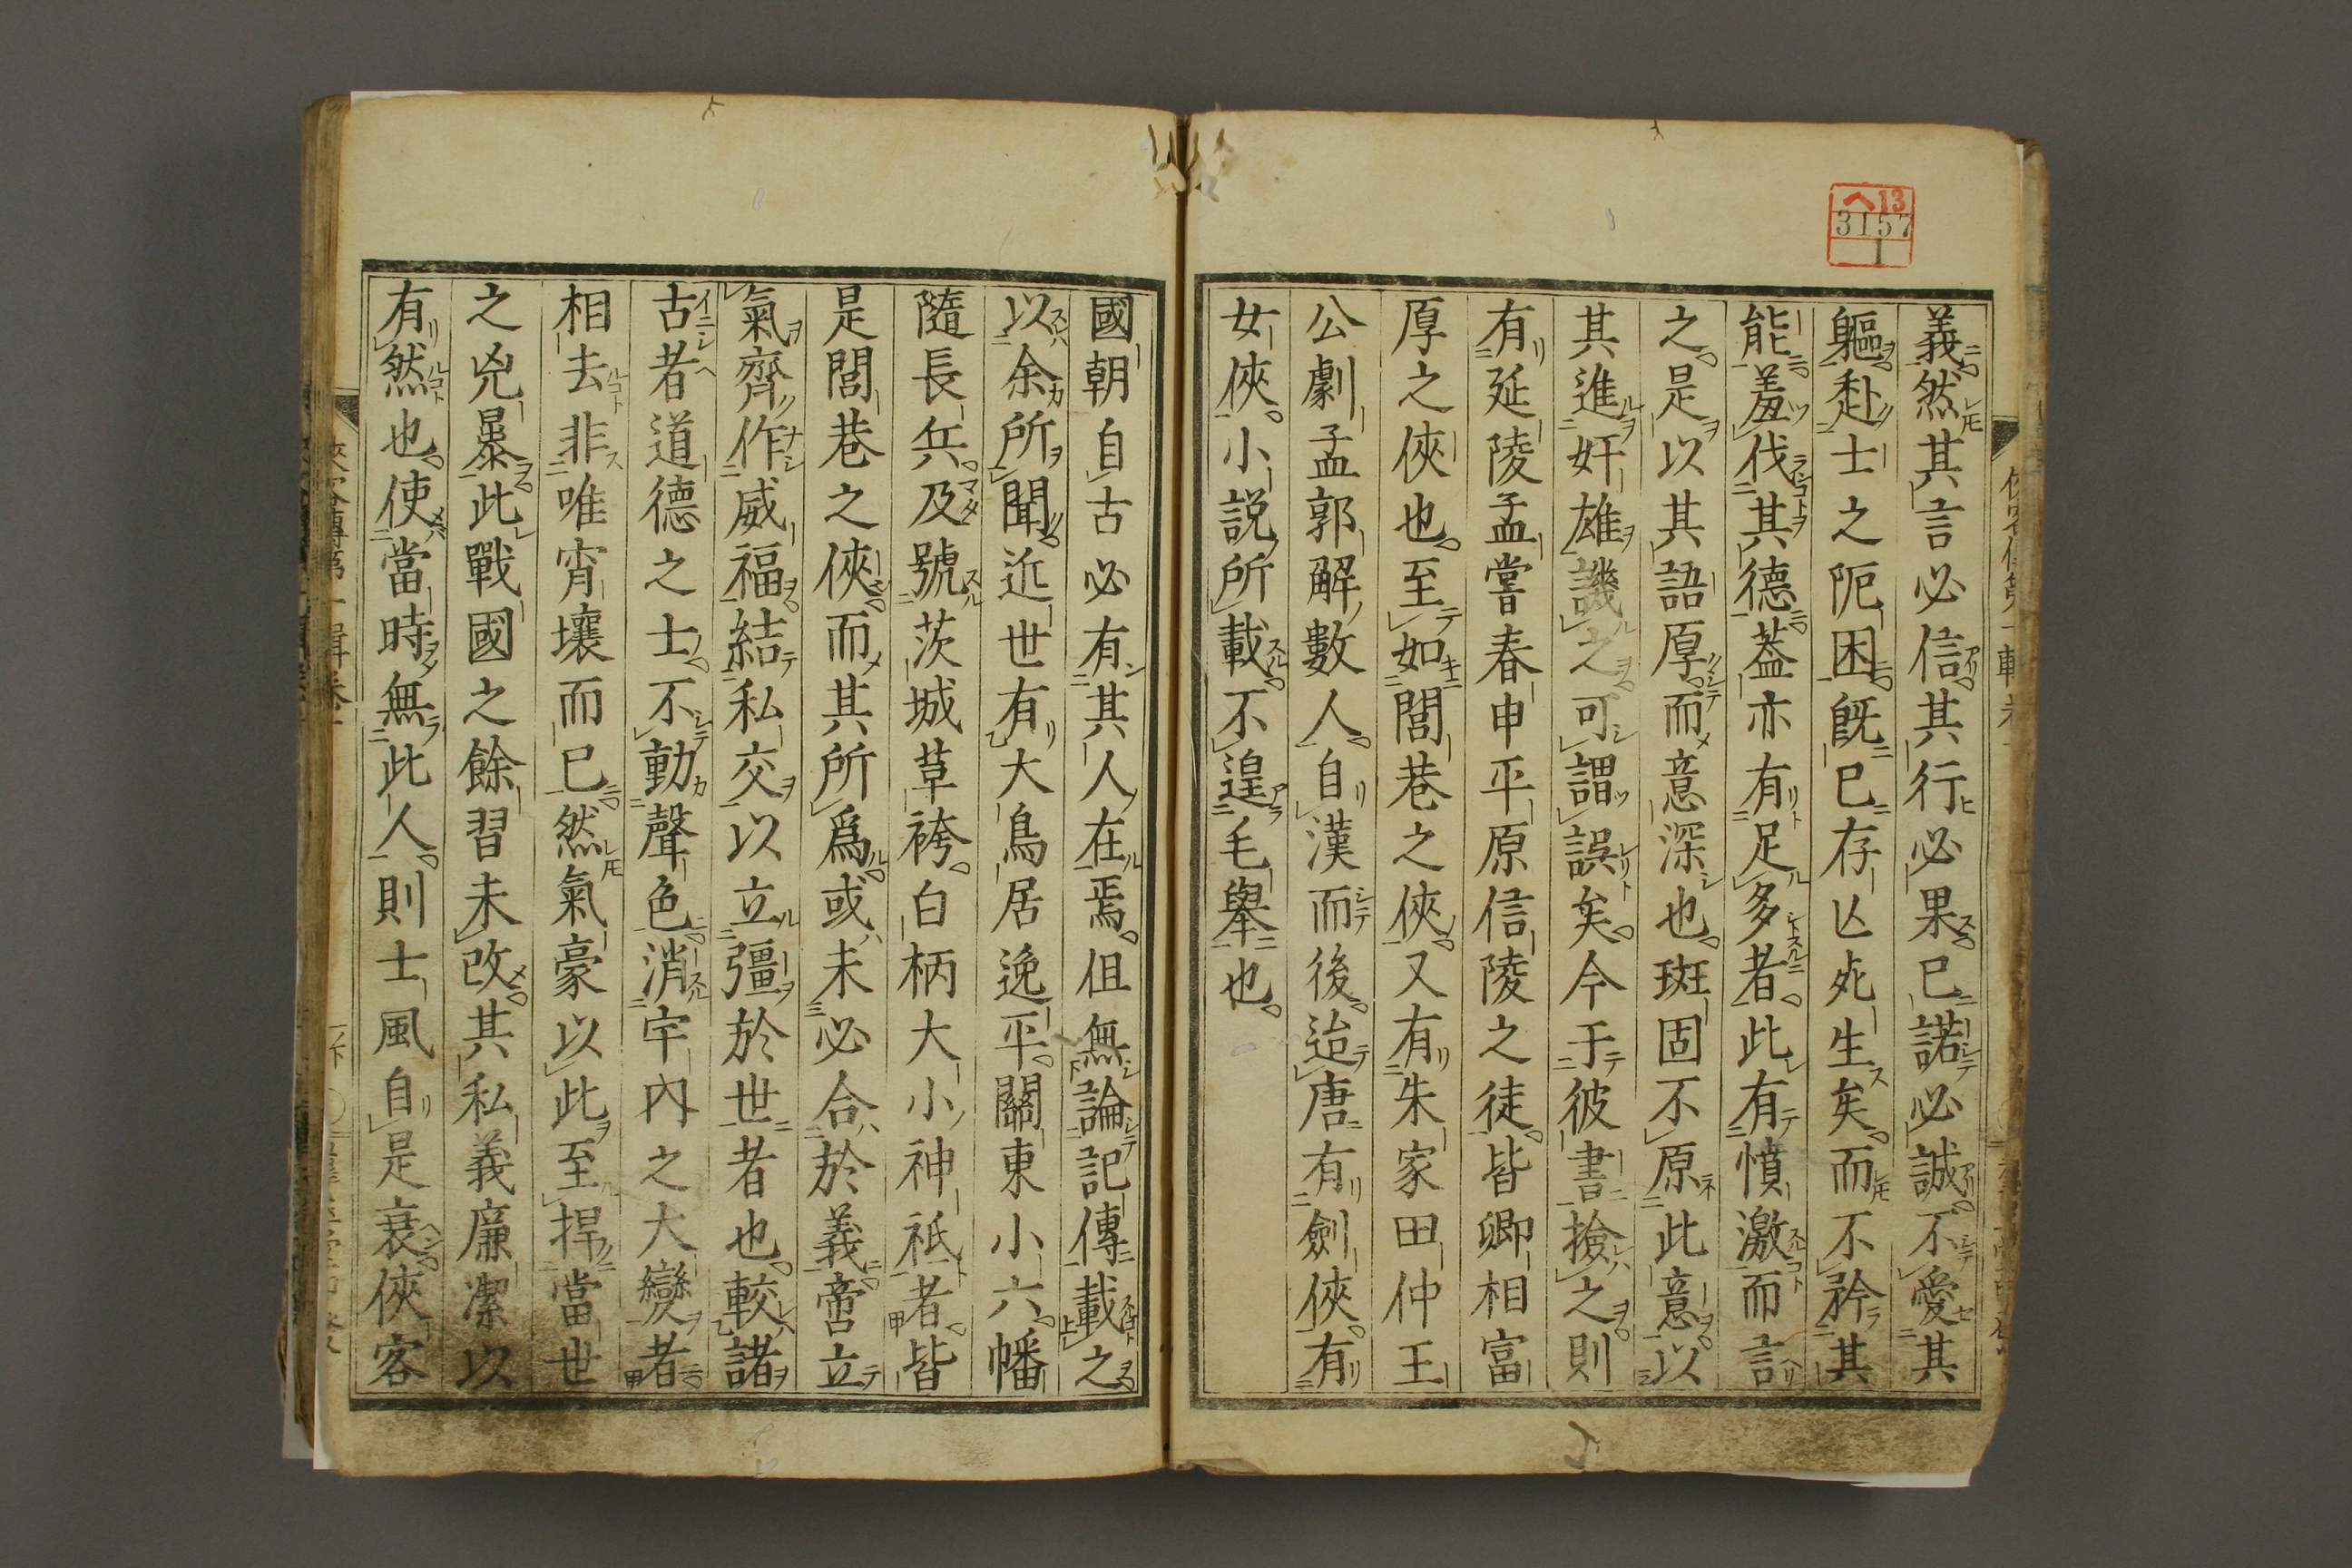 へ13
3157
1
義然其言必信其行必果已諾必誠不愛其
軀赴士之阨困既已存亡死生矣而不矜其
能羞伐其德蓋亦有足多者此有憤激而言
之是以其語厚而意深也班固不原此意以
其進奸雄譏之可謂誤矣今于彼書撿之則
有延陵孟嘗春申平原信陵之徒皆卿相富
厚之俠也至如閭巷之俠又有朱家田仲王
公劇孟郭解數人自漢而後迨唐有劍俠有
女俠小説所載不遑毛舉也
國朝自古必有其人在焉但無論記傳載之
以余所聞近世有大鳥居逸平關東小六幡
隨長兵及號茨城草袴白柄大小神祇者皆
是閭巷之俠而其所爲或未必合於義啻立
氣齊作威福結私交以立彊於世者也較諸
古者道德之士不動聲色消宇内之大變者
相去非唯宵壤而已然氣豪以此至捍當世
之兇暴此戰國之餘習未改其私義廉潔以
有然也使當時無此人則士風自是衰俠客